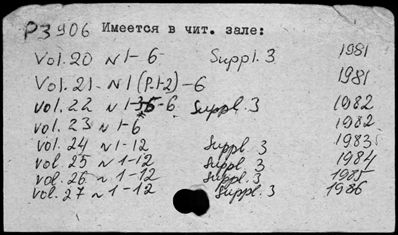 P3 906 Имеется в чит. зале:
Vol. 20 N 1-6 Suppl. 3 1981
Vol. 21 - N1 (P.1-2) - 6 1981
vol. 22 N 1-6 Suppl. 3 1982
vol. 23 N 1-6 1982
vol. 24 N 1-12 Suppl. 3 1983
vol 25 N 1-12 Suppl. 3 1984
vol. 26 N 1-12 Suppl. 3 1985
vol. 27 N 1-12 Suppl. 3 1986